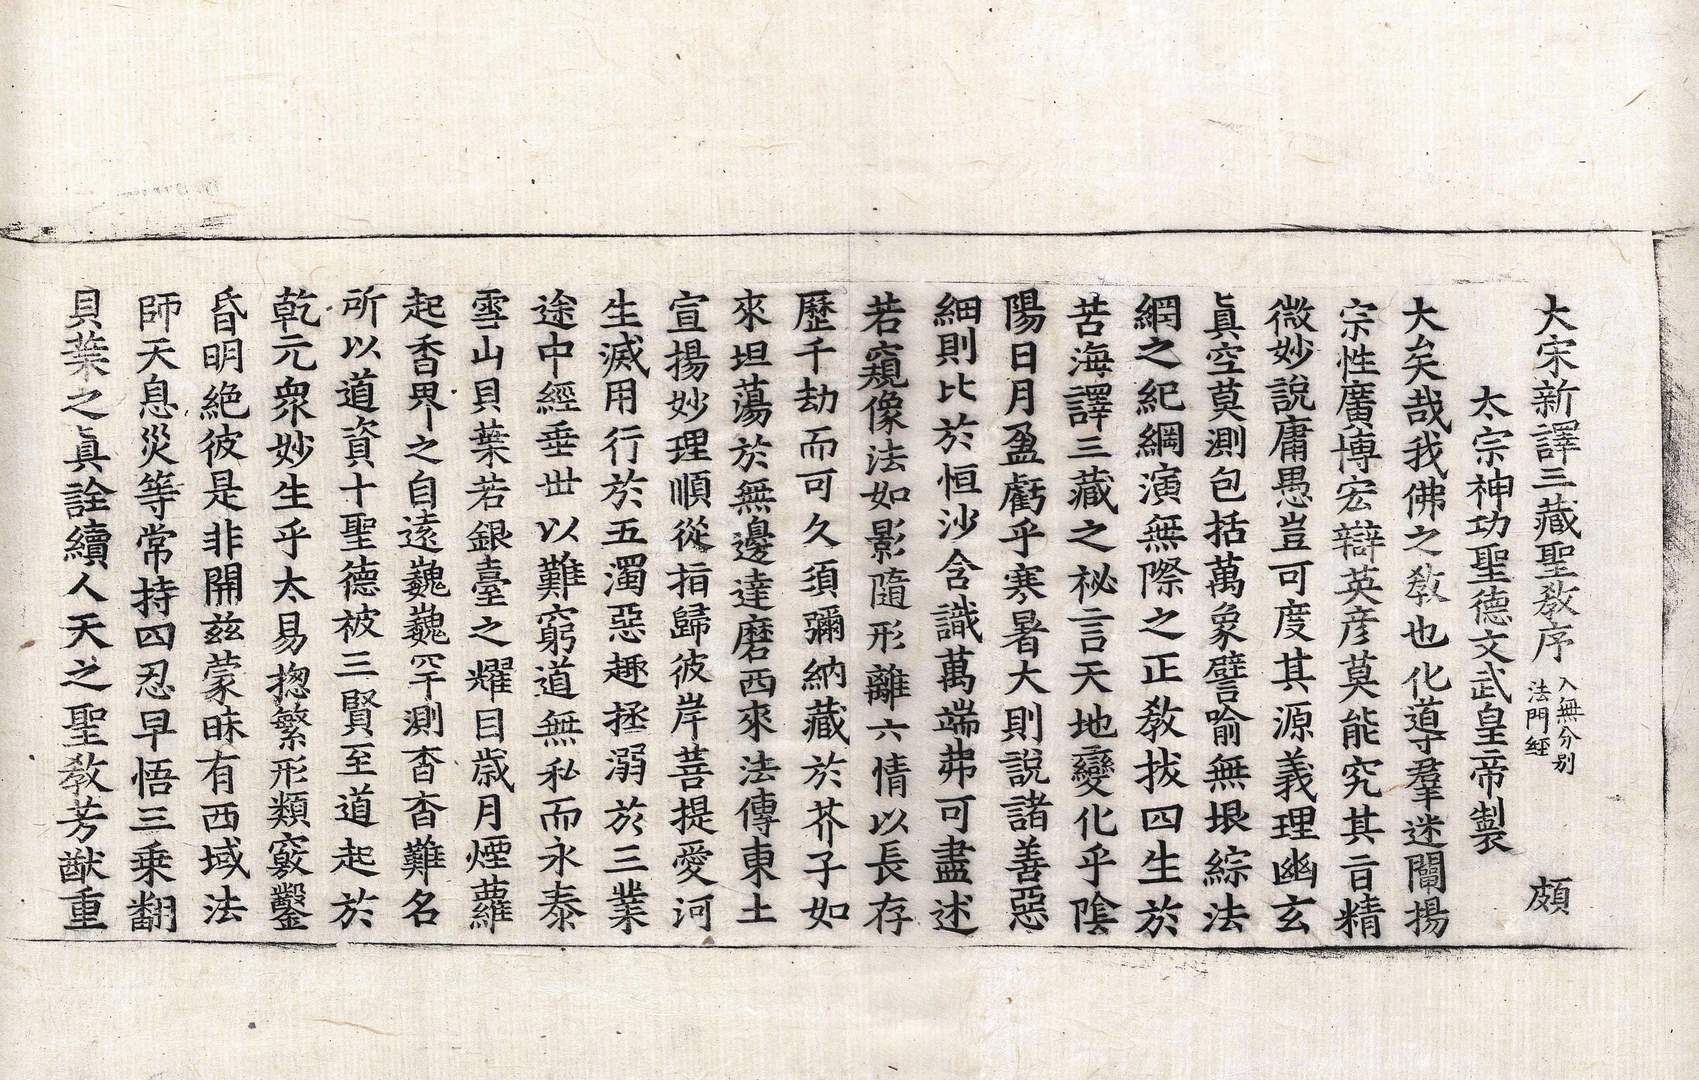 大宋新譯三藏聖教序 入無分別法門經 頗
太宗神功聖德文武皇帝製
大矣哉我佛之教也化導羣迷闡揚
宗性廣博宏辯英彦莫能究其旨精
微妙說庸愚豈可度其源義理幽玄
真空莫測包括萬象譬喻無垠綜法
網之紀綱演無際之正教拔四生於
苦海譯三藏之祕言天地變化乎陰
陽日月盈虧乎寒暑大則說諸善惡
細則比於恒沙含識萬端弗可盡述
若窺像法如影隨形離六情以長存
歷千劫而可久須彌納藏於芥子如
來坦蕩於無邊達磨西來法傳東土
宣揚妙理順從指歸彼岸菩提愛河
生滅用行於五濁惡趣拯溺於三業
途中經垂世以難窮道無私而永泰
雪山貝葉若銀臺之耀目歲月煙蘿
起香界之自遠巍巍罕測杳杳難名
所以道資十聖德被三賢至道起於
乾元衆妙生乎太易揔繁形類竅鑿
昏明絶彼是非開兹蒙昧有西域法
師天息災等常持四忍早悟三乘翻
貝葉之真詮續人天之聖教芳猷重